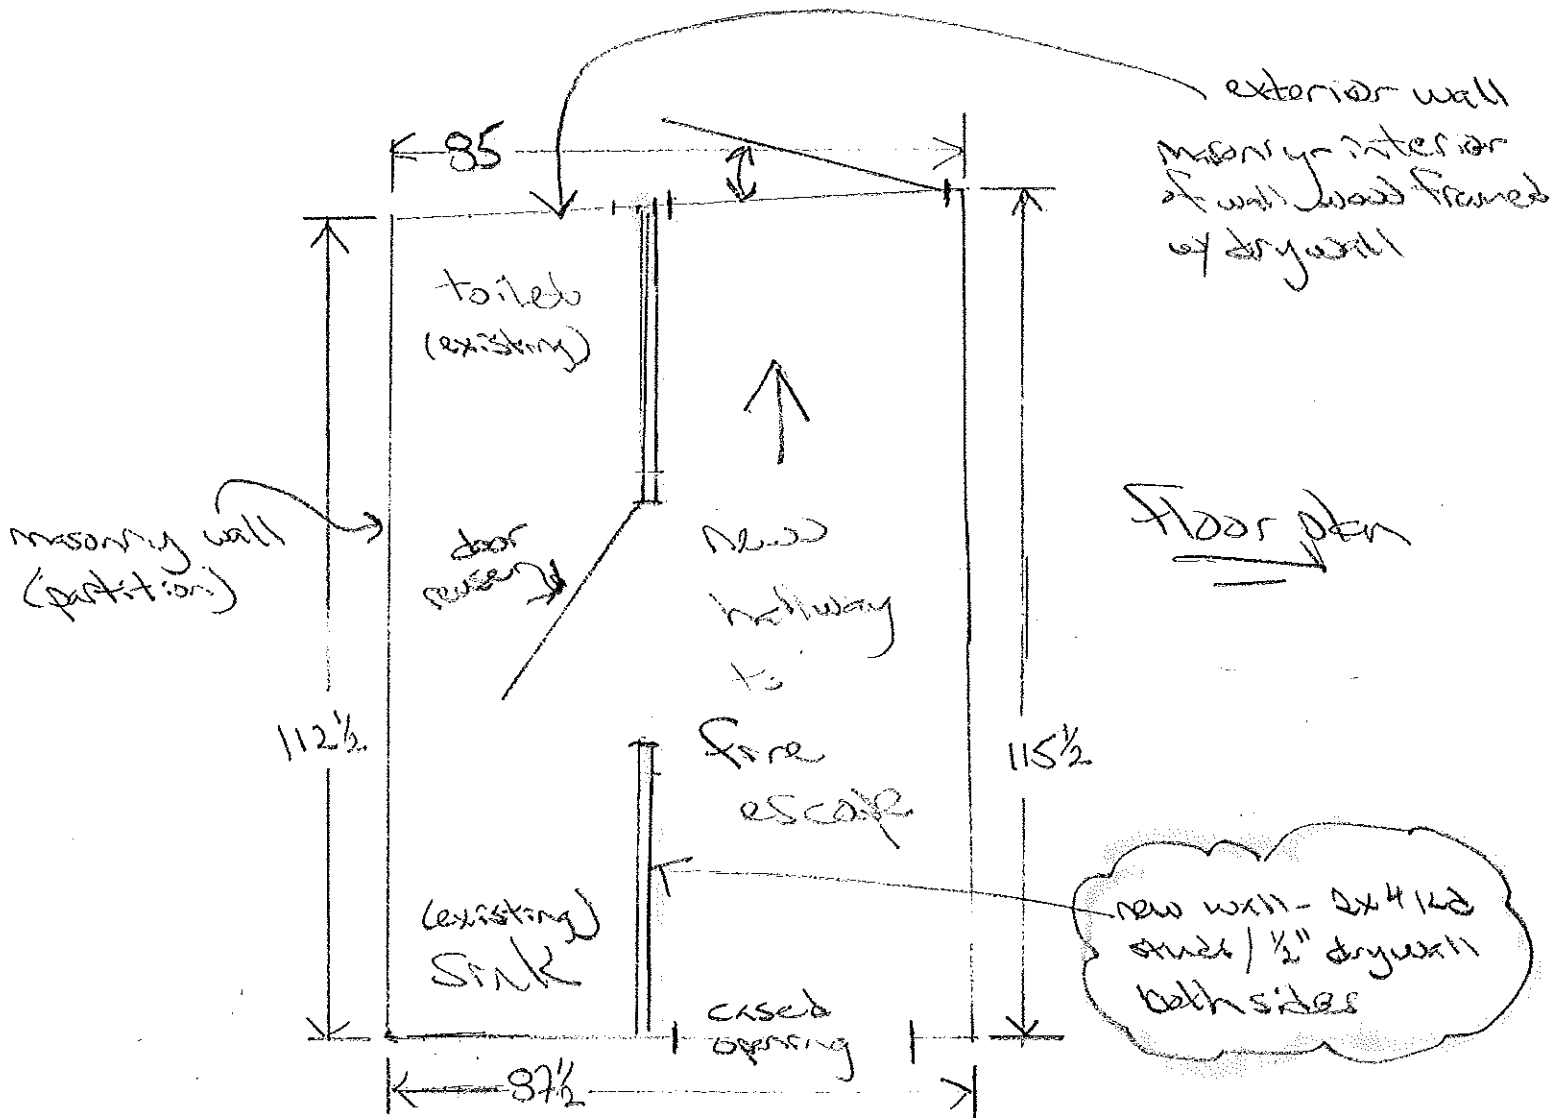 exterior wall
masonry - interior
of wall wood framed
w/ drywall
85
toilet
(existing)
masonry wall
(partition)
door
reuse
new
hallway
to
fire
escape
Floor plan
112½
115½
(existing)
Sink
cased
opening
new wall - 2x4 kd
studs / ½" drywall
both sides
87½